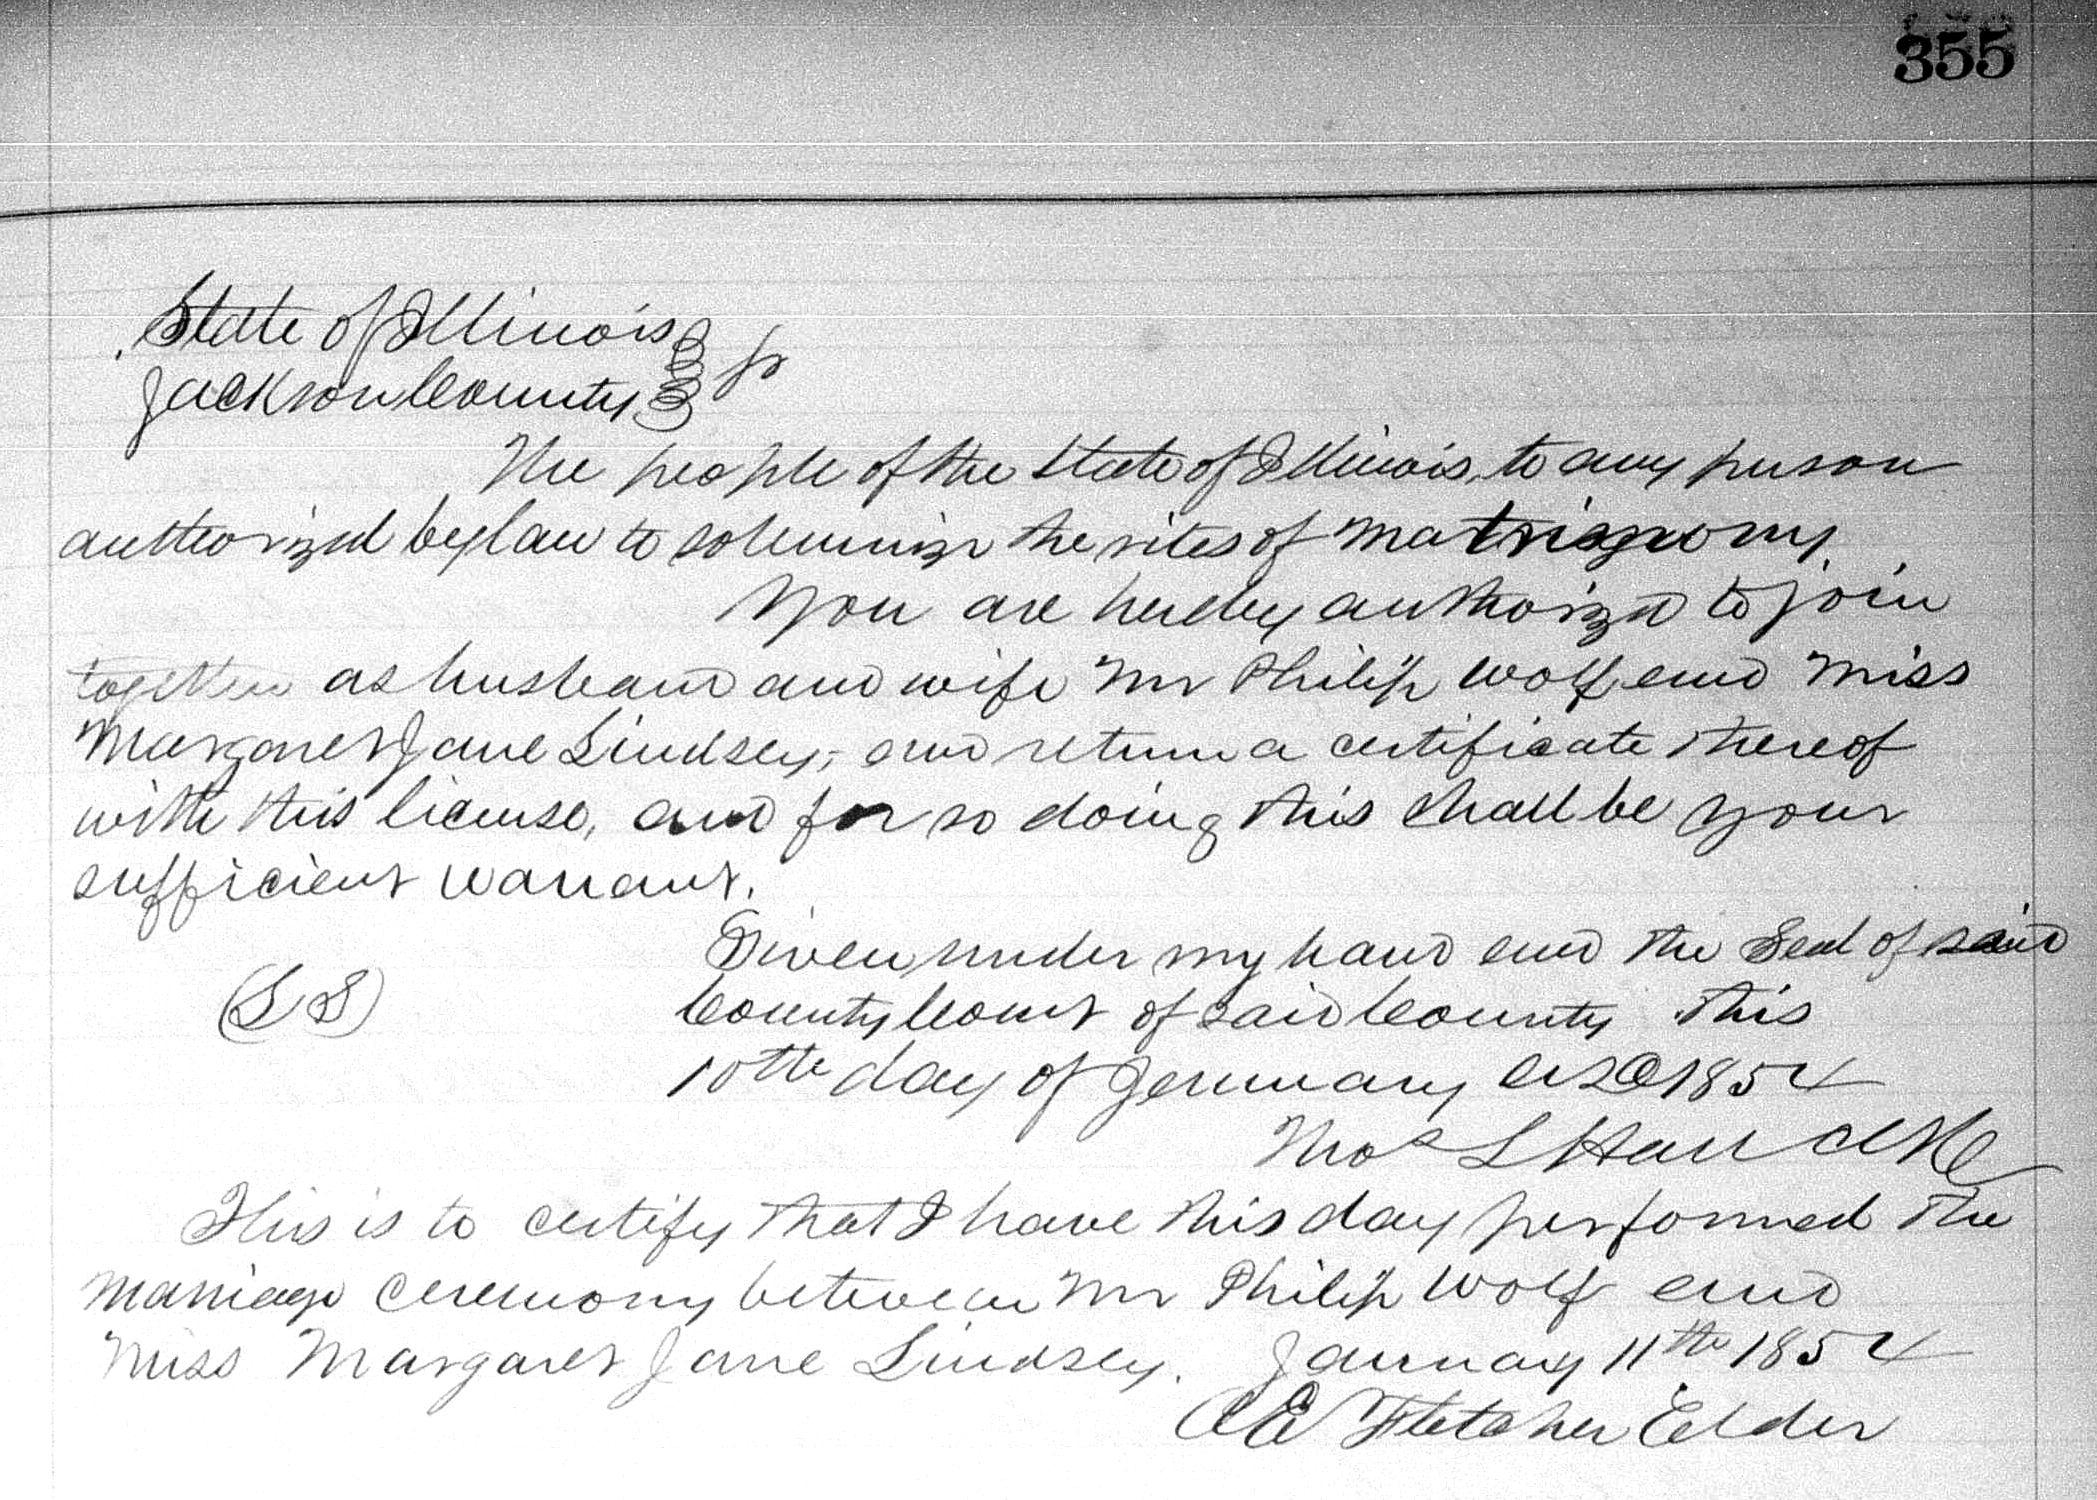 355
State of Illinois
Jackson County } ss
The people of the State of Illinois, to any person
authorized by law to solemnize the rites of matrimony.
You are hereby authorized to join
together as husband and wife Mr Philip Wolf and Miss
Margaret Jane Lindsey, and return a certificate thereof
with this license, and for so doing this shall be your
sufficient warrant.
Given under my hand and the Seal of said
(L S)
County Court of said County this
10th day of January AD 1854
Thos L Han Clk
This is to certify that I have this day performed the
marriage ceremony between Mr Philip Wolf and
Miss Margaret Jane Lindsey. January 11th 1854
Fletcher Elder